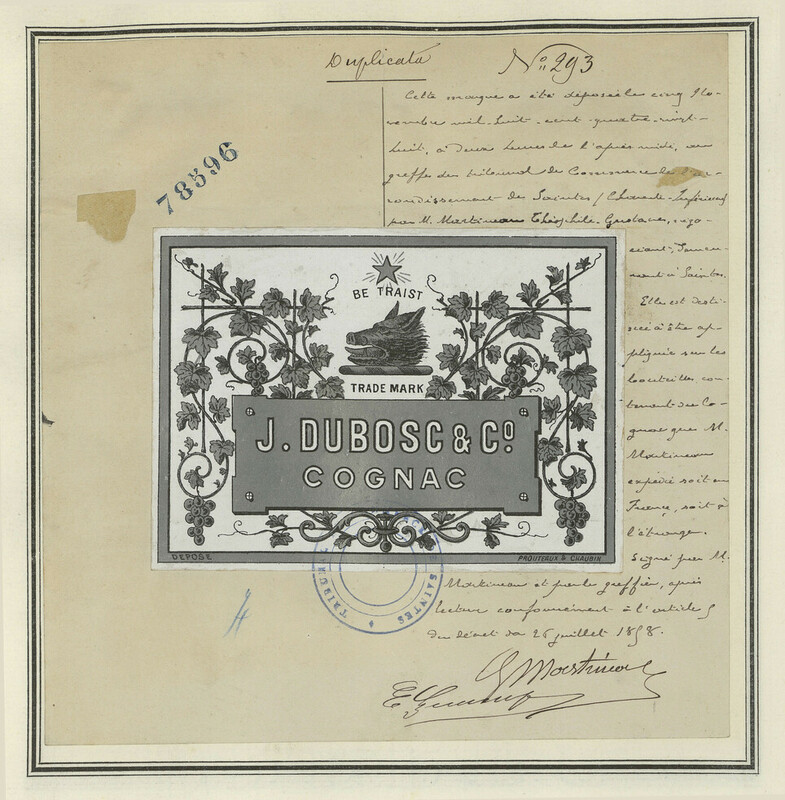 Duplicata
No. 293
78596
Cette marque a été déposée le cinq No-
vembre mil-huit-cent-quatre-vingt-
huit, à deux heures de l'après midi, au
greffe du tribunal de Commerce de l'ar-
rondissement de Saintes (Charente-Inférieure)
par M. Martineau Théophile-Gustave, négo-
ciant, demeu-
rant à Saintes.
Elle est desti-
née à être ap-
pliquée sur les
bouteilles con-
tenant du Co-
gnac que M.
Martineau
expédie soit en
France, soit à
l'étranger.
Signé par M.
Martineau et par le greffier, après
lecture conformément à l'article 5
du décret du 26 juillet 1858.
G Martineau
BE TRAIST
TRADE MARK
J. DUBOSC & Co
COGNAC
DEPOSE
PROUTEAUX & CHAUBIN
TRIBUNAL
SAINTES